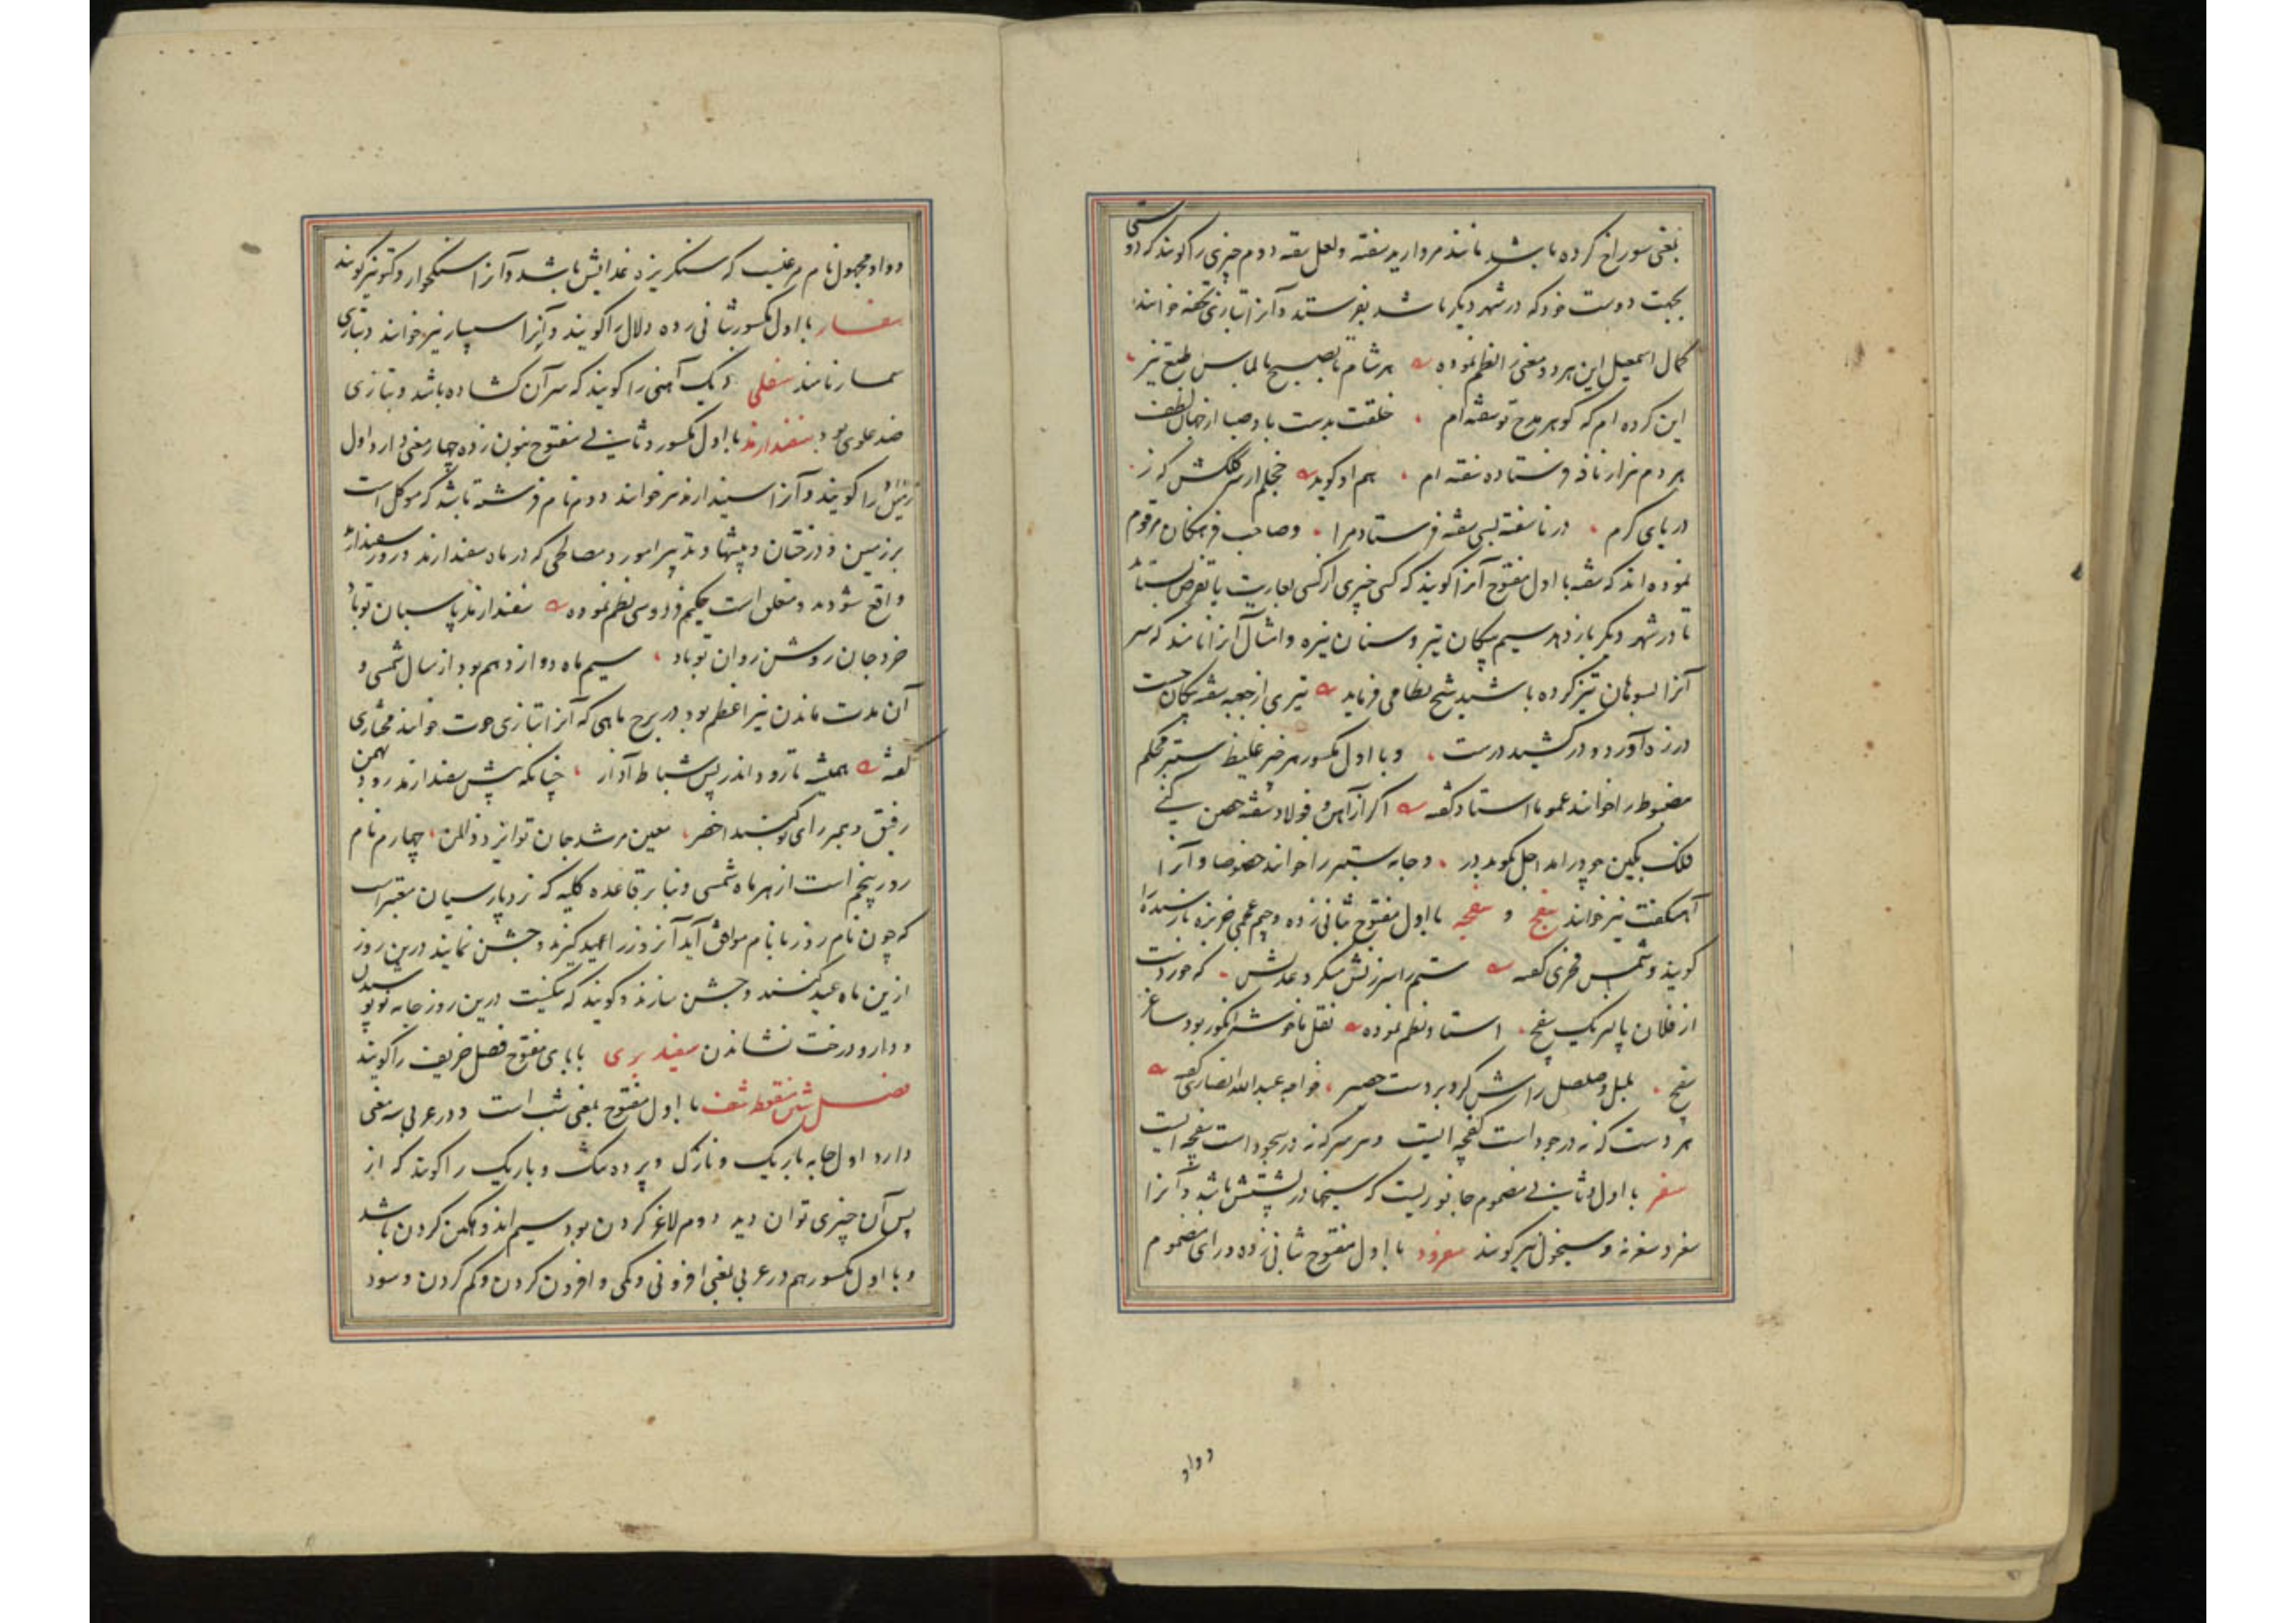 بمعنی سوراخ کرده باشد مانند مروارید سفته و لعل سفته دوم چیزی را گویند که دوستی
بجهت دوست خود که در شهر دیگر باشد بفرستد و آنرا بتازی تحفه خوانند
کمال اسمعیل این هر دو معنی را نظم نموده هر شام تا بصبح بالماس طبع تیز
این کرده ام که گوهر مدح تو سفته ام خلقت بدست باد صبا از جهان لطف
هر دم هزار نافه فرستاده سفته ام هم او گوید خجلم از سر کلکش که ز
دریای کرم در ناسفته بسی سفته فرستاد مرا و صاحب فرهنگان مرقوم
نموده اند که سفته با اول مفتوح آنرا گویند که کسی چیزی از کسی بعاریت یا بقرض بستاند
تا در شهر دیگر باز دهد سیم پیکان تیر و سنان نیزه و امثال آنرا نامند که سر
آنرا بسوهان تیز کرده باشند شیخ نظامی فرماید تیری از جعبه سفته پیکان جست
در زه آورد و در کشید درست و با اول مکسور هر چیز غلیظ ستبر محکم
مضبوط را خوانند عموما استاد گفته اگر از آهن و فولاد سفته حصن کنی
فلک بکین چو در آمد اجل بکوبد در و جامه ستبر را خوانند خصوصا و آنرا
آسکفت نیز خوانند سفج و سفجه با اول مفتوح بثانی زده و جیم عجمی خربزه نارسیده را
گویند و شمس فخری گفته ستم را سرزنش میکرد عدلش که خوردت
از فلان پالیز یک سفج استاد نظم نموده نقل ما خوشه انگور بود ساغر
سفج بلبل و صلصل رامش کرد بر دست عصیر خواجه عبدالله انصاری گفته
هر دست که نه در جود است کفچه ایست و هر سر که نه در سجود است سفچه ایست
سفر با اول و ثانی مضموم جانوریست که سیخها در پشتش باشد و آنرا
سغر و سغرنه و سیخول نیز گویند سفرود با اول مفتوح بثانی زده و رای مضموم
و واو
و واو مجهول نام مرغیست که سنگریزه غذایش باشد و آنرا سنگخوار و کتو نیز گویند
سفسار با اول مکسور بثانی زده دلال را گویند و آنرا سپسار نیز خوانند و بتازی
سمسار نامند سفلی دیک آهنی را گویند که سر آن کشاده باشد و بتازی
ضد علوی بود سفندارمذ با اول مکسور و ثانی مفتوح بنون زده چهار معنی دارد اول
زمین را گویند و آنرا سپندارمذ نیز خوانند دوم نام فرشته باشد که موکل است
بر زمین و درختان و بیشها و تدبیر امور و مصالحی که در ماه سفندارمذ و روز سفندارمذ
واقع شود بدو متعلق است حکیم فردوسی نظم نموده سفندارمذ پاسبان تو باد
خرد جان روشن روان تو باد سیم ماه دوازدهم بود از سال شمسی و
آن مدت ماندن نیر اعظم بود در برج ماهی که آنرا بتازی حوت خوانند مختاری
گفته همیشه تا رود اندر پس شباط آذار چنانکه پیش سفندارمذ رود بهمن
رفیق و همبر رای تو گنبد اخضر معین مرشد جان تو ایزد ذوالمن چهارم نام
روز پنجم است از هر ماه شمسی و بنا بر قاعده کلیه که نزد پارسیان معتبر است
که چون نام روز با نام موافق آید آنروز را عید گیرند و جشن نمایند درین روز
ازین ماه عید کنند و جشن سازند و گویند که نیکست درین روز جامه نو پوشیدن
و دارو درخت نشاندن سفید بری با بای مفتوح فصل خریف را گویند
فصل شین منقوط شف با اول مفتوح بمعنی شب است و در عربی سه معنی
دارد اول جامه باریک و نازک و پرده تنک و باریک را گویند که از
پس آن چیزی توان دید دوم لاغر کردن بود سیم اندوهگین کردن باشد
و با اول مکسور هم در عربی بمعنی افزونی و کمی و افزون کردن و کم کردن و سود